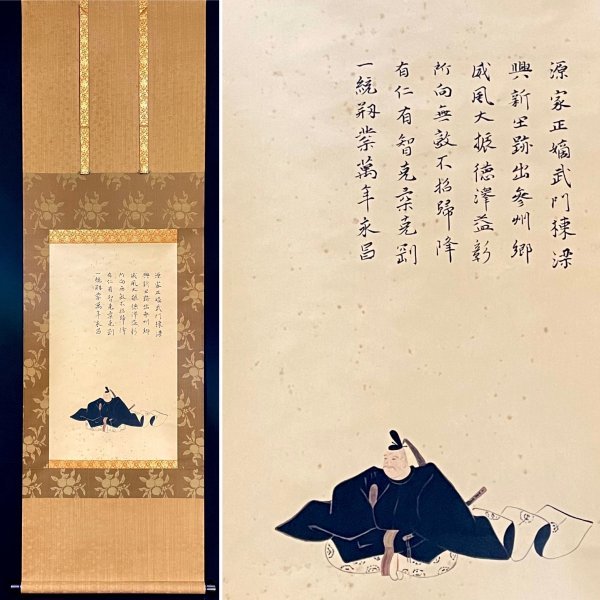 源家正嫡武門棟梁
興新田跡出參州鄉
威風大振德澤益彰
所向無敵不招歸降
有仁有智克柔克剛
一統 業萬年永昌